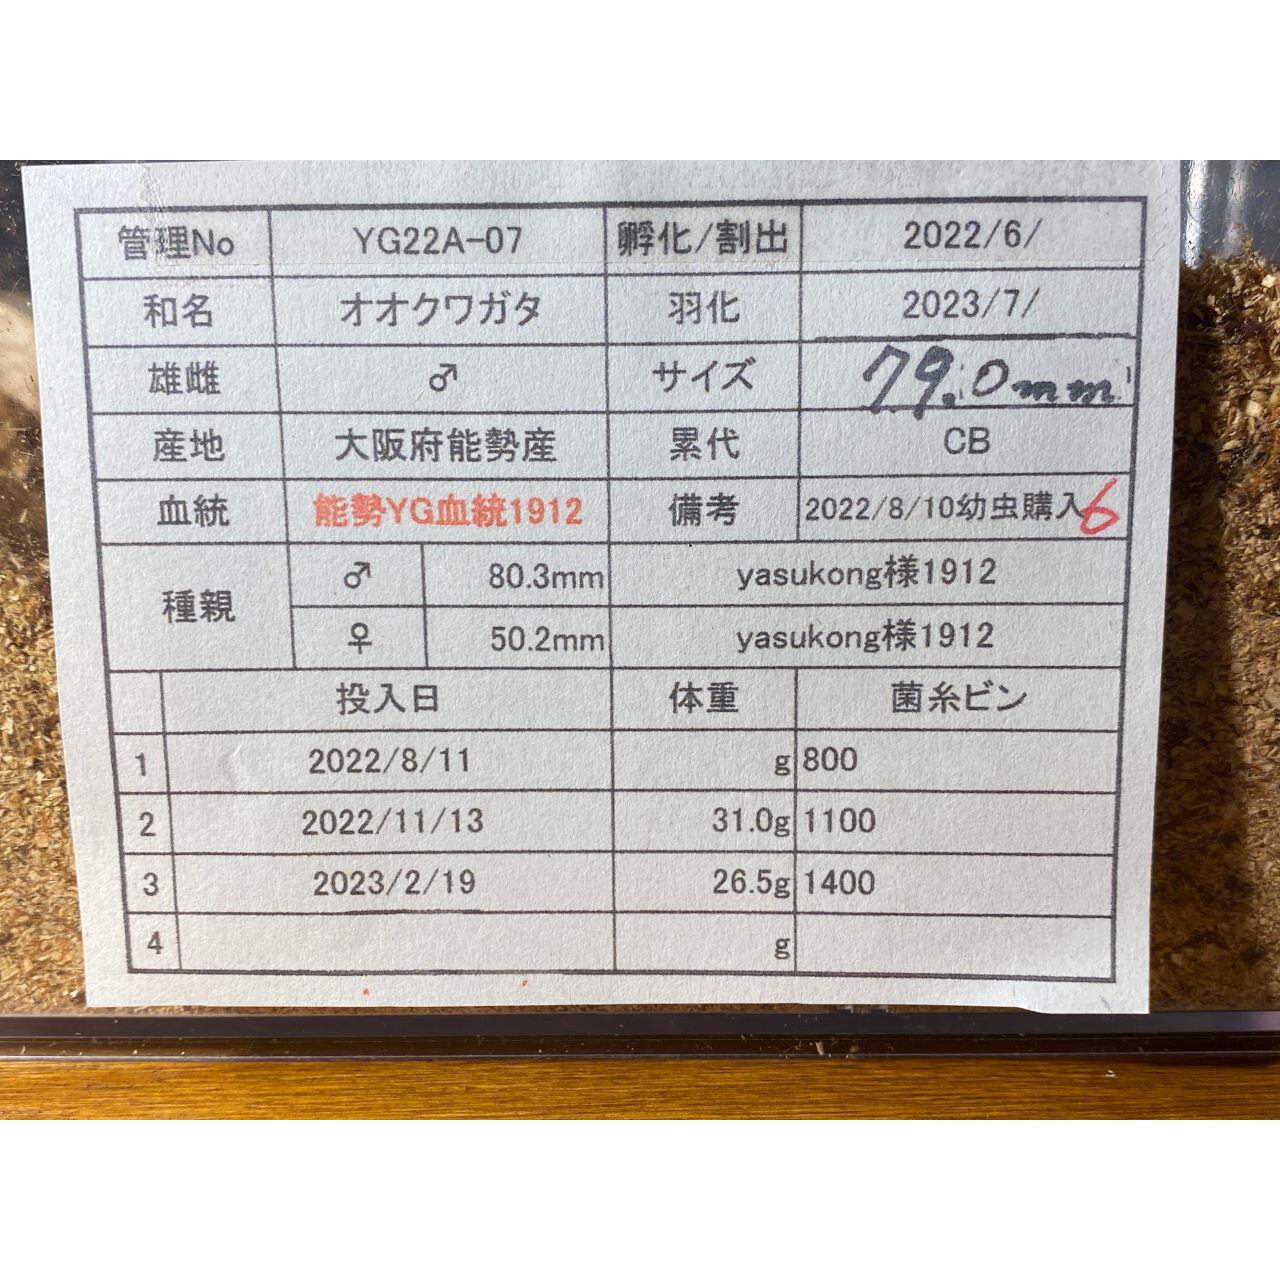 管理No YG22A-07 孵化/割出 2022/6/
和名 オオクワガタ 羽化 2023/7/
雄雌 ♂ サイズ 79.0mm
産地 大阪府能勢産 累代 CB
血統 能勢YG血統1912 備考 2022/8/10幼虫購入6
種親 ♂ 80.3mm yasukong様1912
♀ 50.2mm yasukong様1912
投入日 体重 菌糸ビン
1 2022/8/11 g 800
2 2022/11/13 31.0g 1100
3 2023/2/19 26.5g 1400
4 g